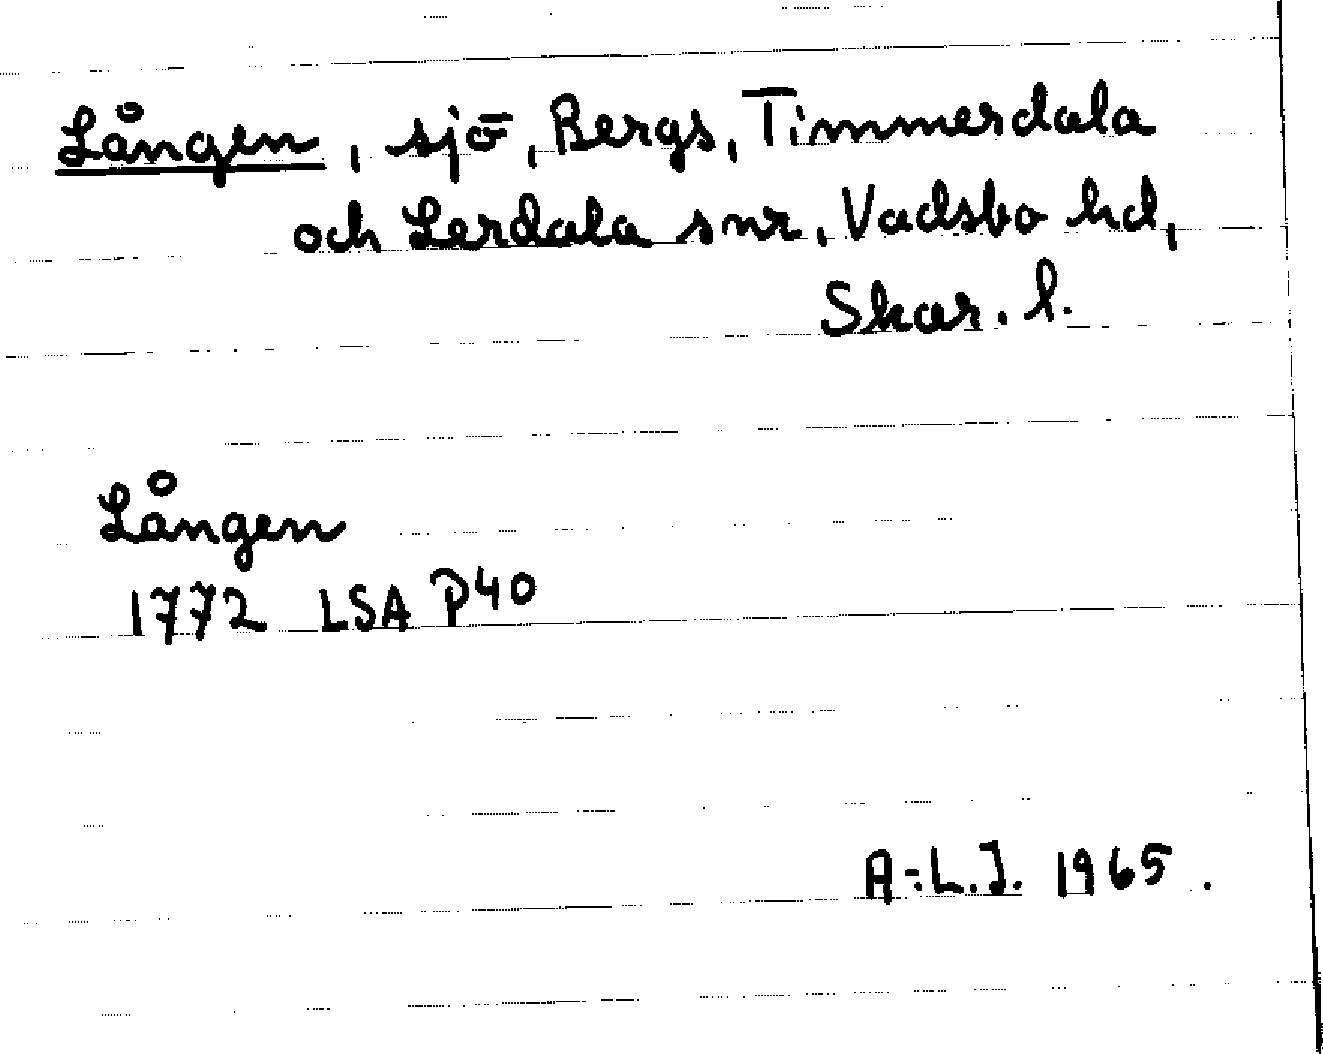 Lången, sjö, Bergs, Timmerdala
och Lerdala snr, Vadsbo hd,
Skar. l.
Lången
1772 LSA P40
A-L.J. 1965.